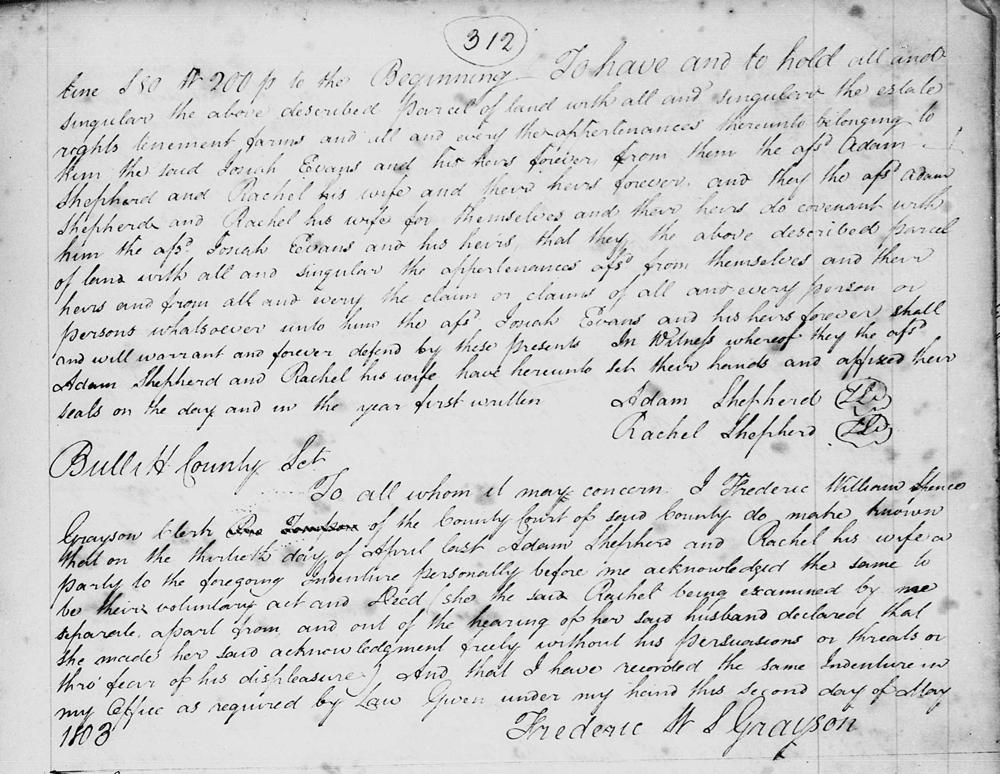 312
line S80 W 200 p to the Beginning To have and to hold all and
singular the above described parcel of land with all and singular the estate
rights tenement farms and all and every the appertenances thereunto belonging to
him the said Josiah Evans and his heirs forever from them the afsd Adam
Shepherd and Rachel his wife and their heirs forever, and they the afsd Adam
Shepherd and Rachel his wife for themselves and their heirs do covenant with
him the afsd Josiah Evans and his heirs, that they the above described parcel
of land with all and singular the appertenances afsd from themselves and their
heirs and from all and every the claim or claims of all and every person or
persons whatsoever unto him the afsd Josiah Evans and his heirs forever shall
and will warrant and forever defend by these presents In Witness whereof they the afsd
Adam Shepherd and Rachel his wife have hereunto set their hands and affixed their
seals on the day and in the year first written Adam Shepherd
Rachel Shepherd
Bullitt County Sct
To all whom it may concern I Frederic William Spence
Grayson Clerk of the County Court of said County do make known
that on the thirtieth day of April last Adam Shepherd and Rachel his wife a
party to the foregoing Indenture personally before me acknowledged the same to
be their voluntary act and Deed (she the said Rachel being examined by me
separate, apart from, and out of the hearing of her said husband declared that
she made her said acknowledgment freely without his persuasions or threats or
thro' fear of his displeasure) And that I have recorded the same Indenture in
my Office as required by Law Given under my hand this second day of May
1803 Frederic W S Grayson